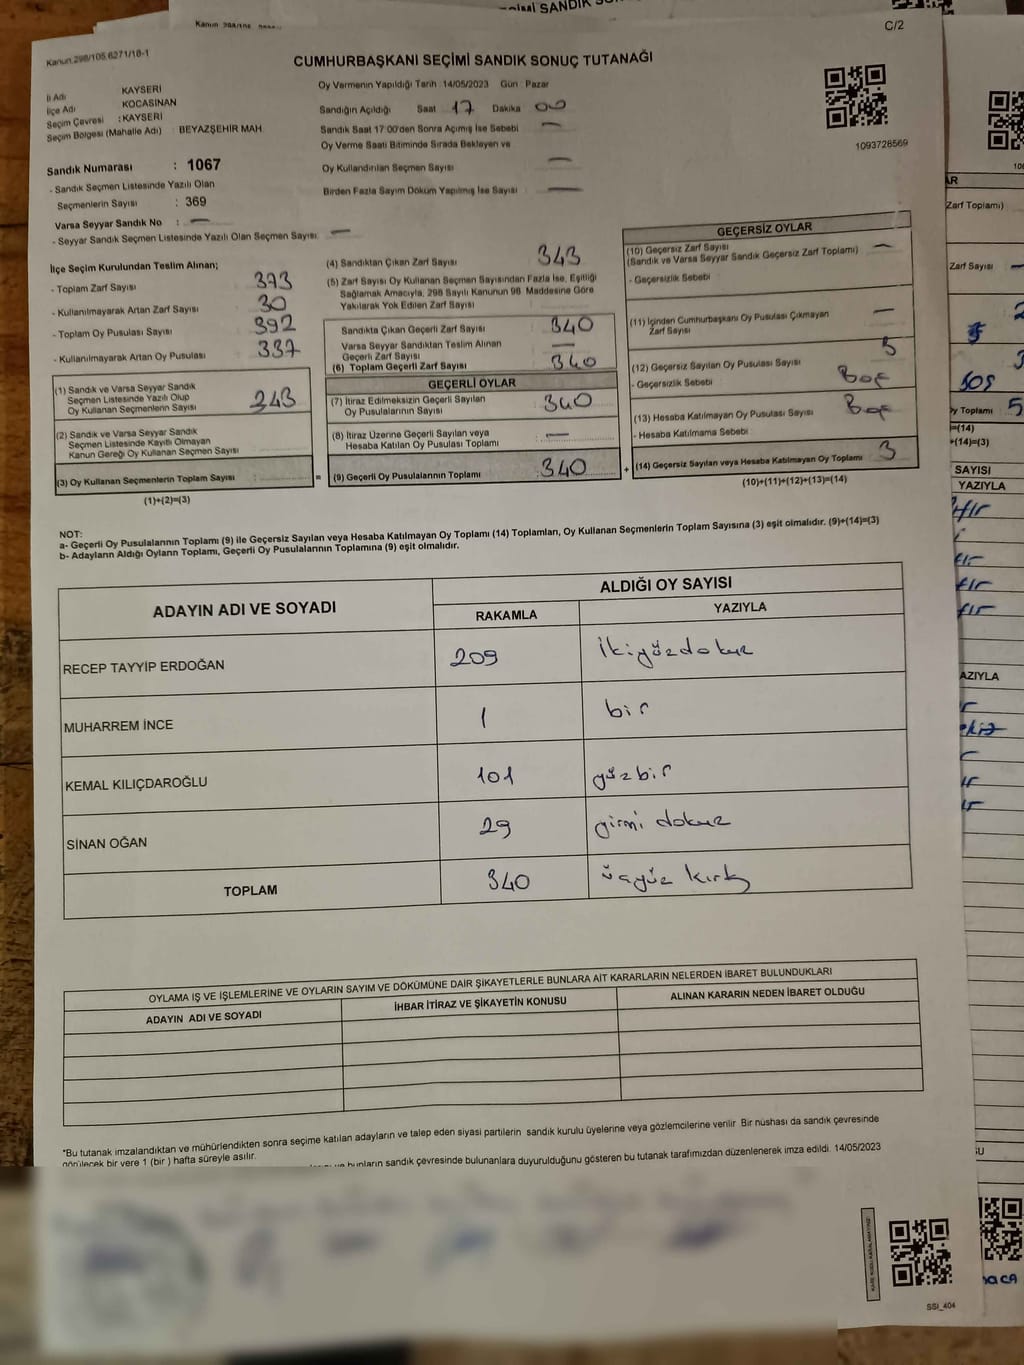 C/2
Kanun 298/105,6271/18-1
CUMHURBAŞKANI SEÇİMİ SANDIK SONUÇ TUTANAĞI
İl Adı KAYSERİ
İlçe Adı KOCASİNAN
Seçim Çevresi : KAYSERİ
Seçim Bölgesi (Mahalle Adı) : BEYAZŞEHİR MAH.
Oy Vermenin Yapıldığı Tarih 14/05/2023 Gün Pazar
Sandığın Açıldığı Saat 17 Dakika 00
Sandık Saat 17:00'den Sonra Açımış İse Sebebi —
Oy Verme Saati Bitiminde Sırada Bekleyen ve
Oy Kullandırılan Seçmen Sayısı —
Birden Fazla Sayım Döküm Yapılmış İse Sayısı —
1093728569
Sandık Numarası : 1067
- Sandık Seçmen Listesinde Yazılı Olan
Seçmenlerin Sayısı : 369
Varsa Seyyar Sandık No : —
- Seyyar Sandık Seçmen Listesinde Yazılı Olan Seçmen Sayısı: —
İlçe Seçim Kurulundan Teslim Alınan;
- Toplam Zarf Sayısı 373
- Kullanılmayarak Artan Zarf Sayısı 30
- Toplam Oy Pusulası Sayısı 392
- Kullanılmayarak Artan Oy Pusulası
(1) Sandık ve Varsa Seyyar Sandık
Seçmen Listesinde Yazılı Olup
Oy Kullanan Seçmenlerin Sayısı 343
(2) Sandık ve Varsa Seyyar Sandık
Seçmen Listesinde Kayıtlı Olmayan
Kanun Gereği Oy Kullanan Seçmen Sayısı
(3) Oy Kullanan Seçmenlerin Toplam Sayısı
(1)+(2)=(3)
(4) Sandıktan Çıkan Zarf Sayısı 343
(5) Zarf Sayısı Oy Kullanan Seçmen Sayısından Fazla İse, Eşitliği
Sağlamak Amacıyla, 298 Sayılı Kanunun 98. Maddesine Göre
Yakılarak Yok Edilen Zarf Sayısı
Sandıkta Çıkan Geçerli Zarf Sayısı 340
Varsa Seyyar Sandıktan Teslim Alınan
Geçerli Zarf Sayısı —
(6) Toplam Geçerli Zarf Sayısı 340
GEÇERLİ OYLAR
(7) İtiraz Edilmeksizin Geçerli Sayılan
Oy Pusulalarının Sayısı 340
(8) İtiraz Üzerine Geçerli Sayılan veya
Hesaba Katılan Oy Pusulası Toplamı —
= (9) Geçerli Oy Pusulalarının Toplamı 340
GEÇERSİZ OYLAR
(10) Geçersiz Zarf Sayısı
(Sandık ve Varsa Seyyar Sandık Geçersiz Zarf Toplamı) —
- Geçersizlik Sebebi
(11) İçinden Cumhurbaşkanı Oy Pusulası Çıkmayan
Zarf Sayısı —
(12) Geçersiz Sayılan Oy Pusulası Sayısı
- Geçersizlik Sebebi
(13) Hesaba Katılmayan Oy Pusulası Sayısı
- Hesaba Katılmama Sebebi
+ (14) Geçersiz Sayılan veya Hesaba Katılmayan Oy Toplamı 3
(10)+(11)+(12)+(13)=(14)
NOT:
a- Geçerli Oy Pusulalarının Toplamı (9) ile Geçersiz Sayılan veya Hesaba Katılmayan Oy Toplamı (14) Toplamları, Oy Kullanan Seçmenlerin Toplam Sayısına (3) eşit olmalıdır. (9)+(14)=(3)
b- Adayların Aldığı Oyların Toplamı, Geçerli Oy Pusulalarının Toplamına (9) eşit olmalıdır.
ADAYIN ADI VE SOYADI
ALDIĞI OY SAYISI
RAKAMLA YAZIYLA
RECEP TAYYİP ERDOĞAN 209 ikiyüzdokuz
MUHARREM İNCE 1 bir
KEMAL KILIÇDAROĞLU 101 yüzbir
SİNAN OĞAN 29 yirmi dokuz
TOPLAM 340 üçyüz kırk
OYLAMA İŞ VE İŞLEMLERİNE VE OYLARIN SAYIM VE DÖKÜMÜNE DAİR ŞİKAYETLERLE BUNLARA AİT KARARLARIN NELERDEN İBARET BULUNDUKLARI
ADAYIN ADI VE SOYADI İHBAR İTİRAZ VE ŞİKAYETİN KONUSU ALINAN KARARIN NEDEN İBARET OLDUĞU
"Bu tutanak imzalandıktan ve mühürlendikten sonra seçime katılan adayların ve talep eden siyasi partilerin sandık kurulu üyelerine veya gözlemcilerine verilir. Bir nüshası da sandık çevresinde
görülecek bir yere 1 (bir ) hafta süreyle asılır.
bunların sandık çevresinde bulunanlara duyurulduğunu gösteren bu tutanak tarafımızdan düzenlenerek imza edildi. 14/05/2023
SSI_404
Zarf Toplamı)
Zarf Sayısı
Toplamı 5
=(14)
+(14)=(3)
SAYISI
YAZIYLA